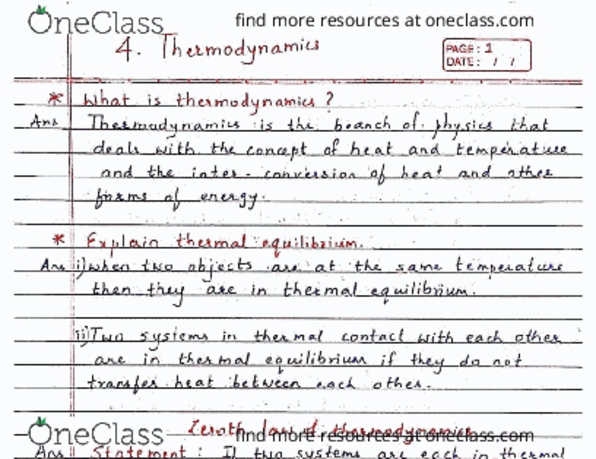 OneClass find more resources at oneclass.com
4. Thermodynamics
PAGE: 1
DATE: / /
* What is thermodynamics?
Ans Thermodynamics is the branch of physics that
deals with the concept of heat and temperature
and the inter-conversion of heat and other
forms of energy.
* Explain thermal equilibrium.
Ans i) when two objects are at the same temperature
then they are in thermal equilibrium.
ii) Two systems in thermal contact with each other
are in thermal equilibrium if they do not
transfer heat between each other.
Zeroth law of thermodynamics
OneClass find more resources at oneclass.com
Ans Statement: If two systems are each in thermal